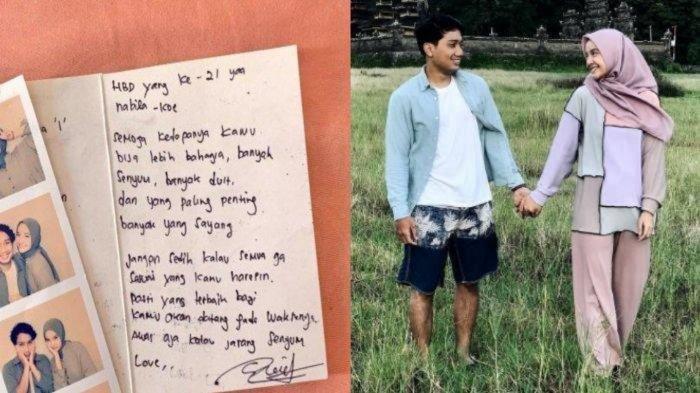 a '1'
HBD yang ke - 21 yaa
nabila - koe
semoga kedepanya kamu
bisa lebih bahagia, banyak
senyum, banyak duit.
dan yang paling penting
banyak yang sayang
jangan sedih kalau semua ga
sesuai yang kamu harepin.
pasti yang terbaik bagi
kamu akan datang pada waktunya
awas aja kalau jarang senyum
Love,